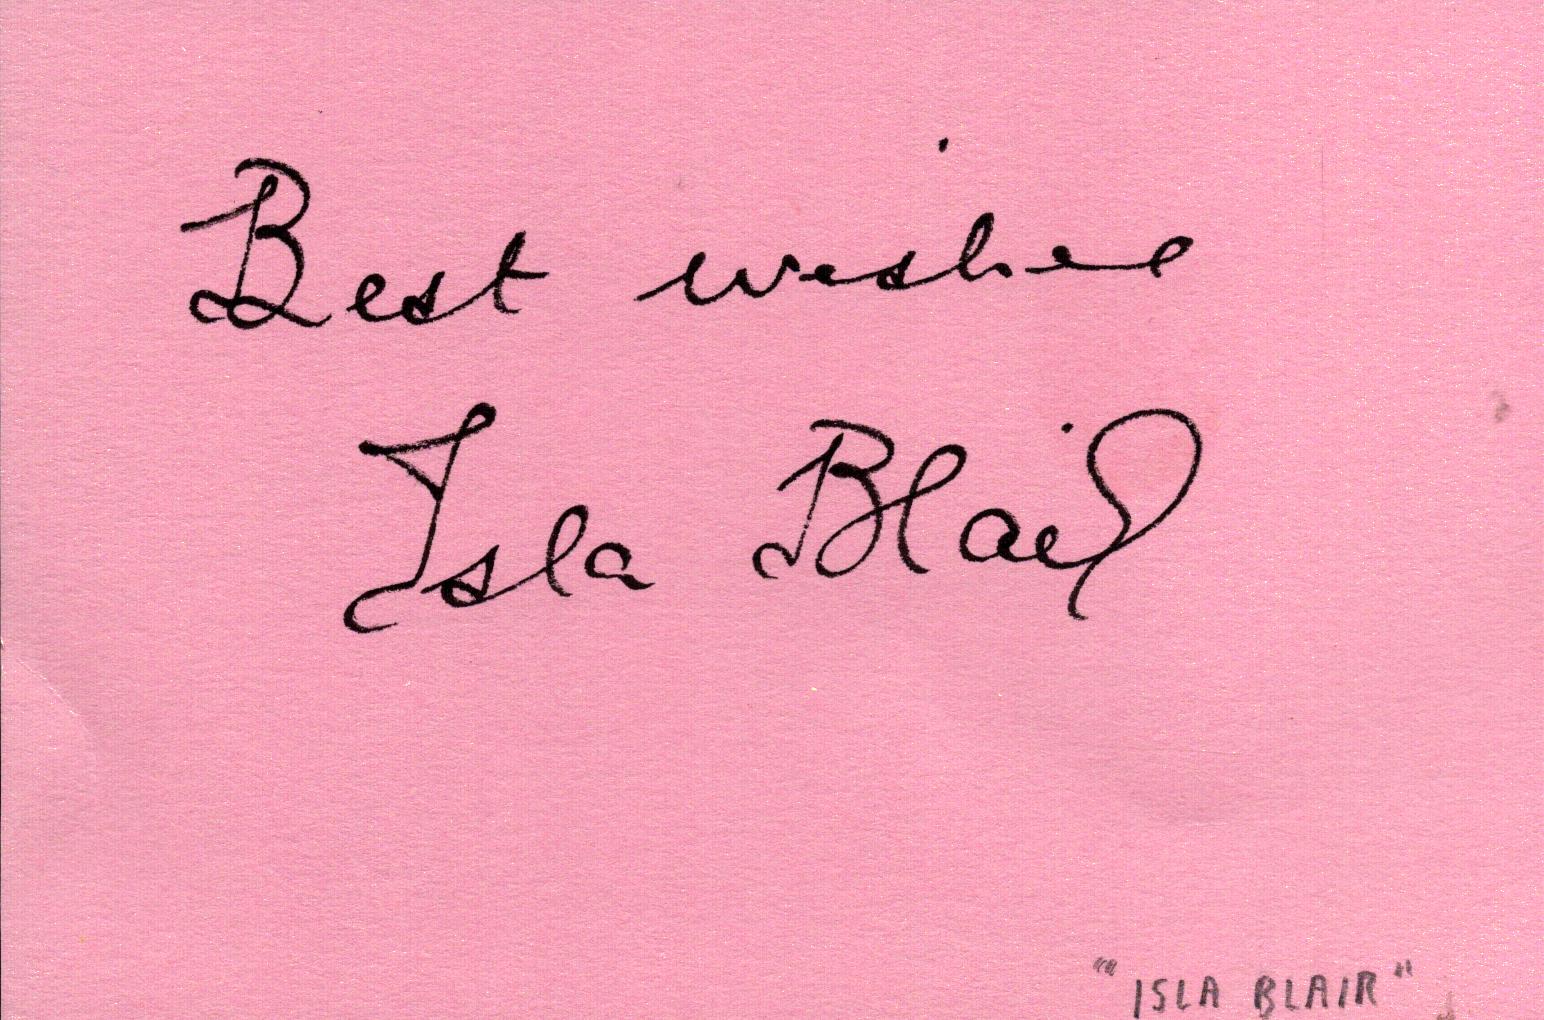 Best wishes
Isla Blair
"ISLA BLAIR"